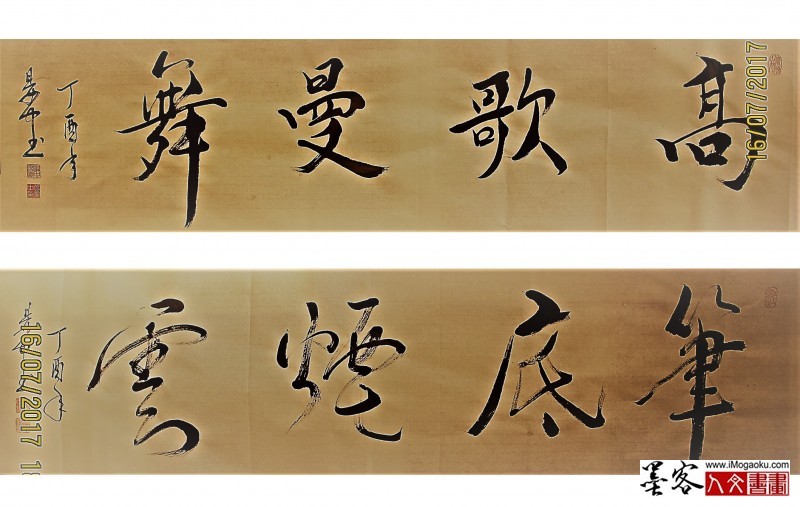 高歌曼舞
丁酉年
16/07/2017
筆底煙雲
丁酉年
16/07/2017 18
墨客
www.iMogaoku.com
人文書畫